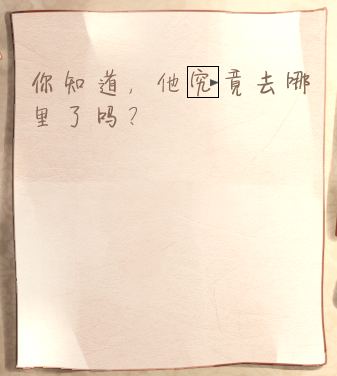 你知道，他究竟去哪
里了吗？